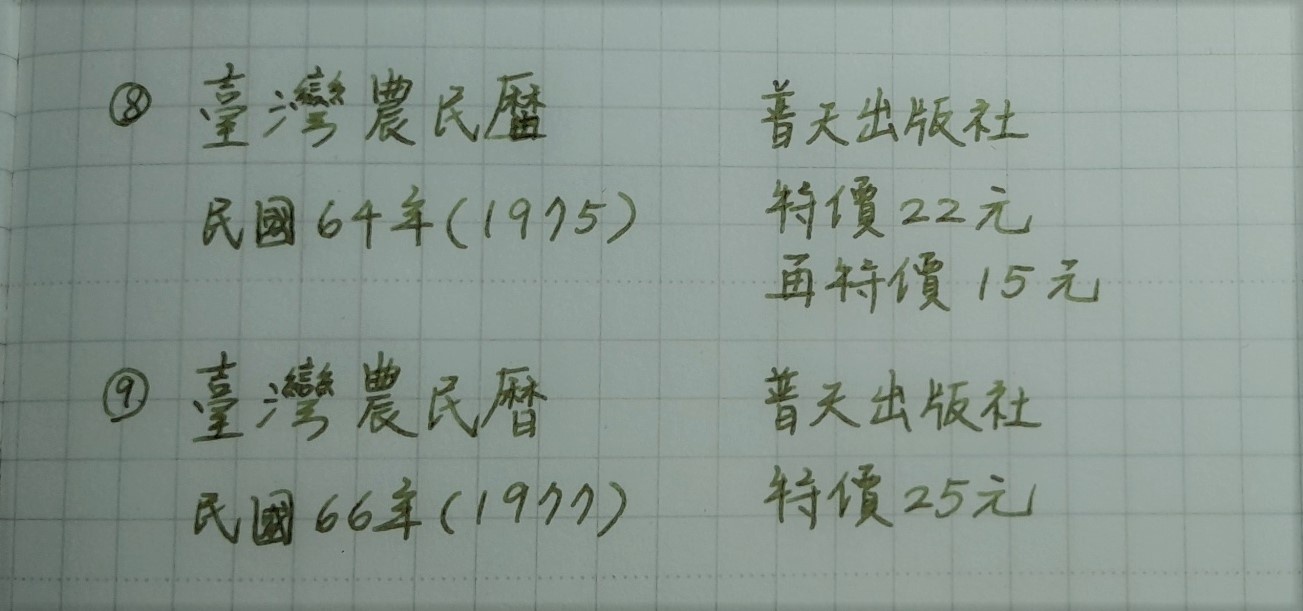 ⑧ 臺灣農民曆 普天出版社
民國64年(1975) 特價22元
再特價15元
⑨ 臺灣農民曆 普天出版社
民國66年(1977) 特價25元